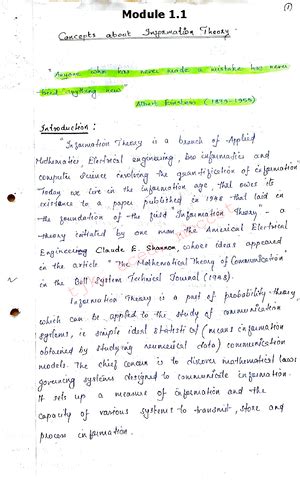 Module 1.1
1
Concepts about Information Theory
"Anyone who has never made a mistake has never
tried anything new"
Albert Einstein (1879-1955)
Introduction:
"Information Theory is a branch of Applied
Mathematics, Electrical engineering, bio informatics and
computer science involving the quantification of information"
Today we live in the information age, that owes its
existance to a paper published in 1948 that laid in
the foundation of the field Information Theory - a
theory initiated by one man the American Electrical
Engineering Claude E. Shannon, whose ideas appeared
in the article "The Mathematical Theory of Communication
in the Bell System Technical Journal (1948).
Information Theory is a part of probability theory
which can be applied to the study of communication
systems, ie simple ideal statistical (means information
obtained by studying numerical data) communication
models. The chief concern is to discover mathematical laws
governing systems designed to communicate information.
It sets up a measure of information and the
capacity of various systems to transmit, store and
process information.